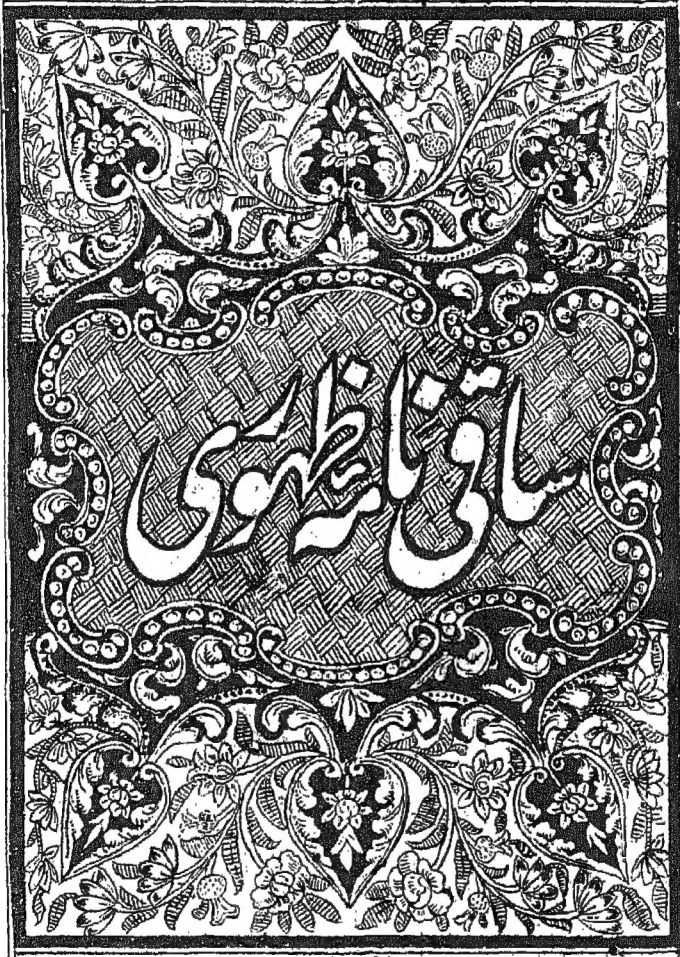 ساقی نامۂ ظهوری